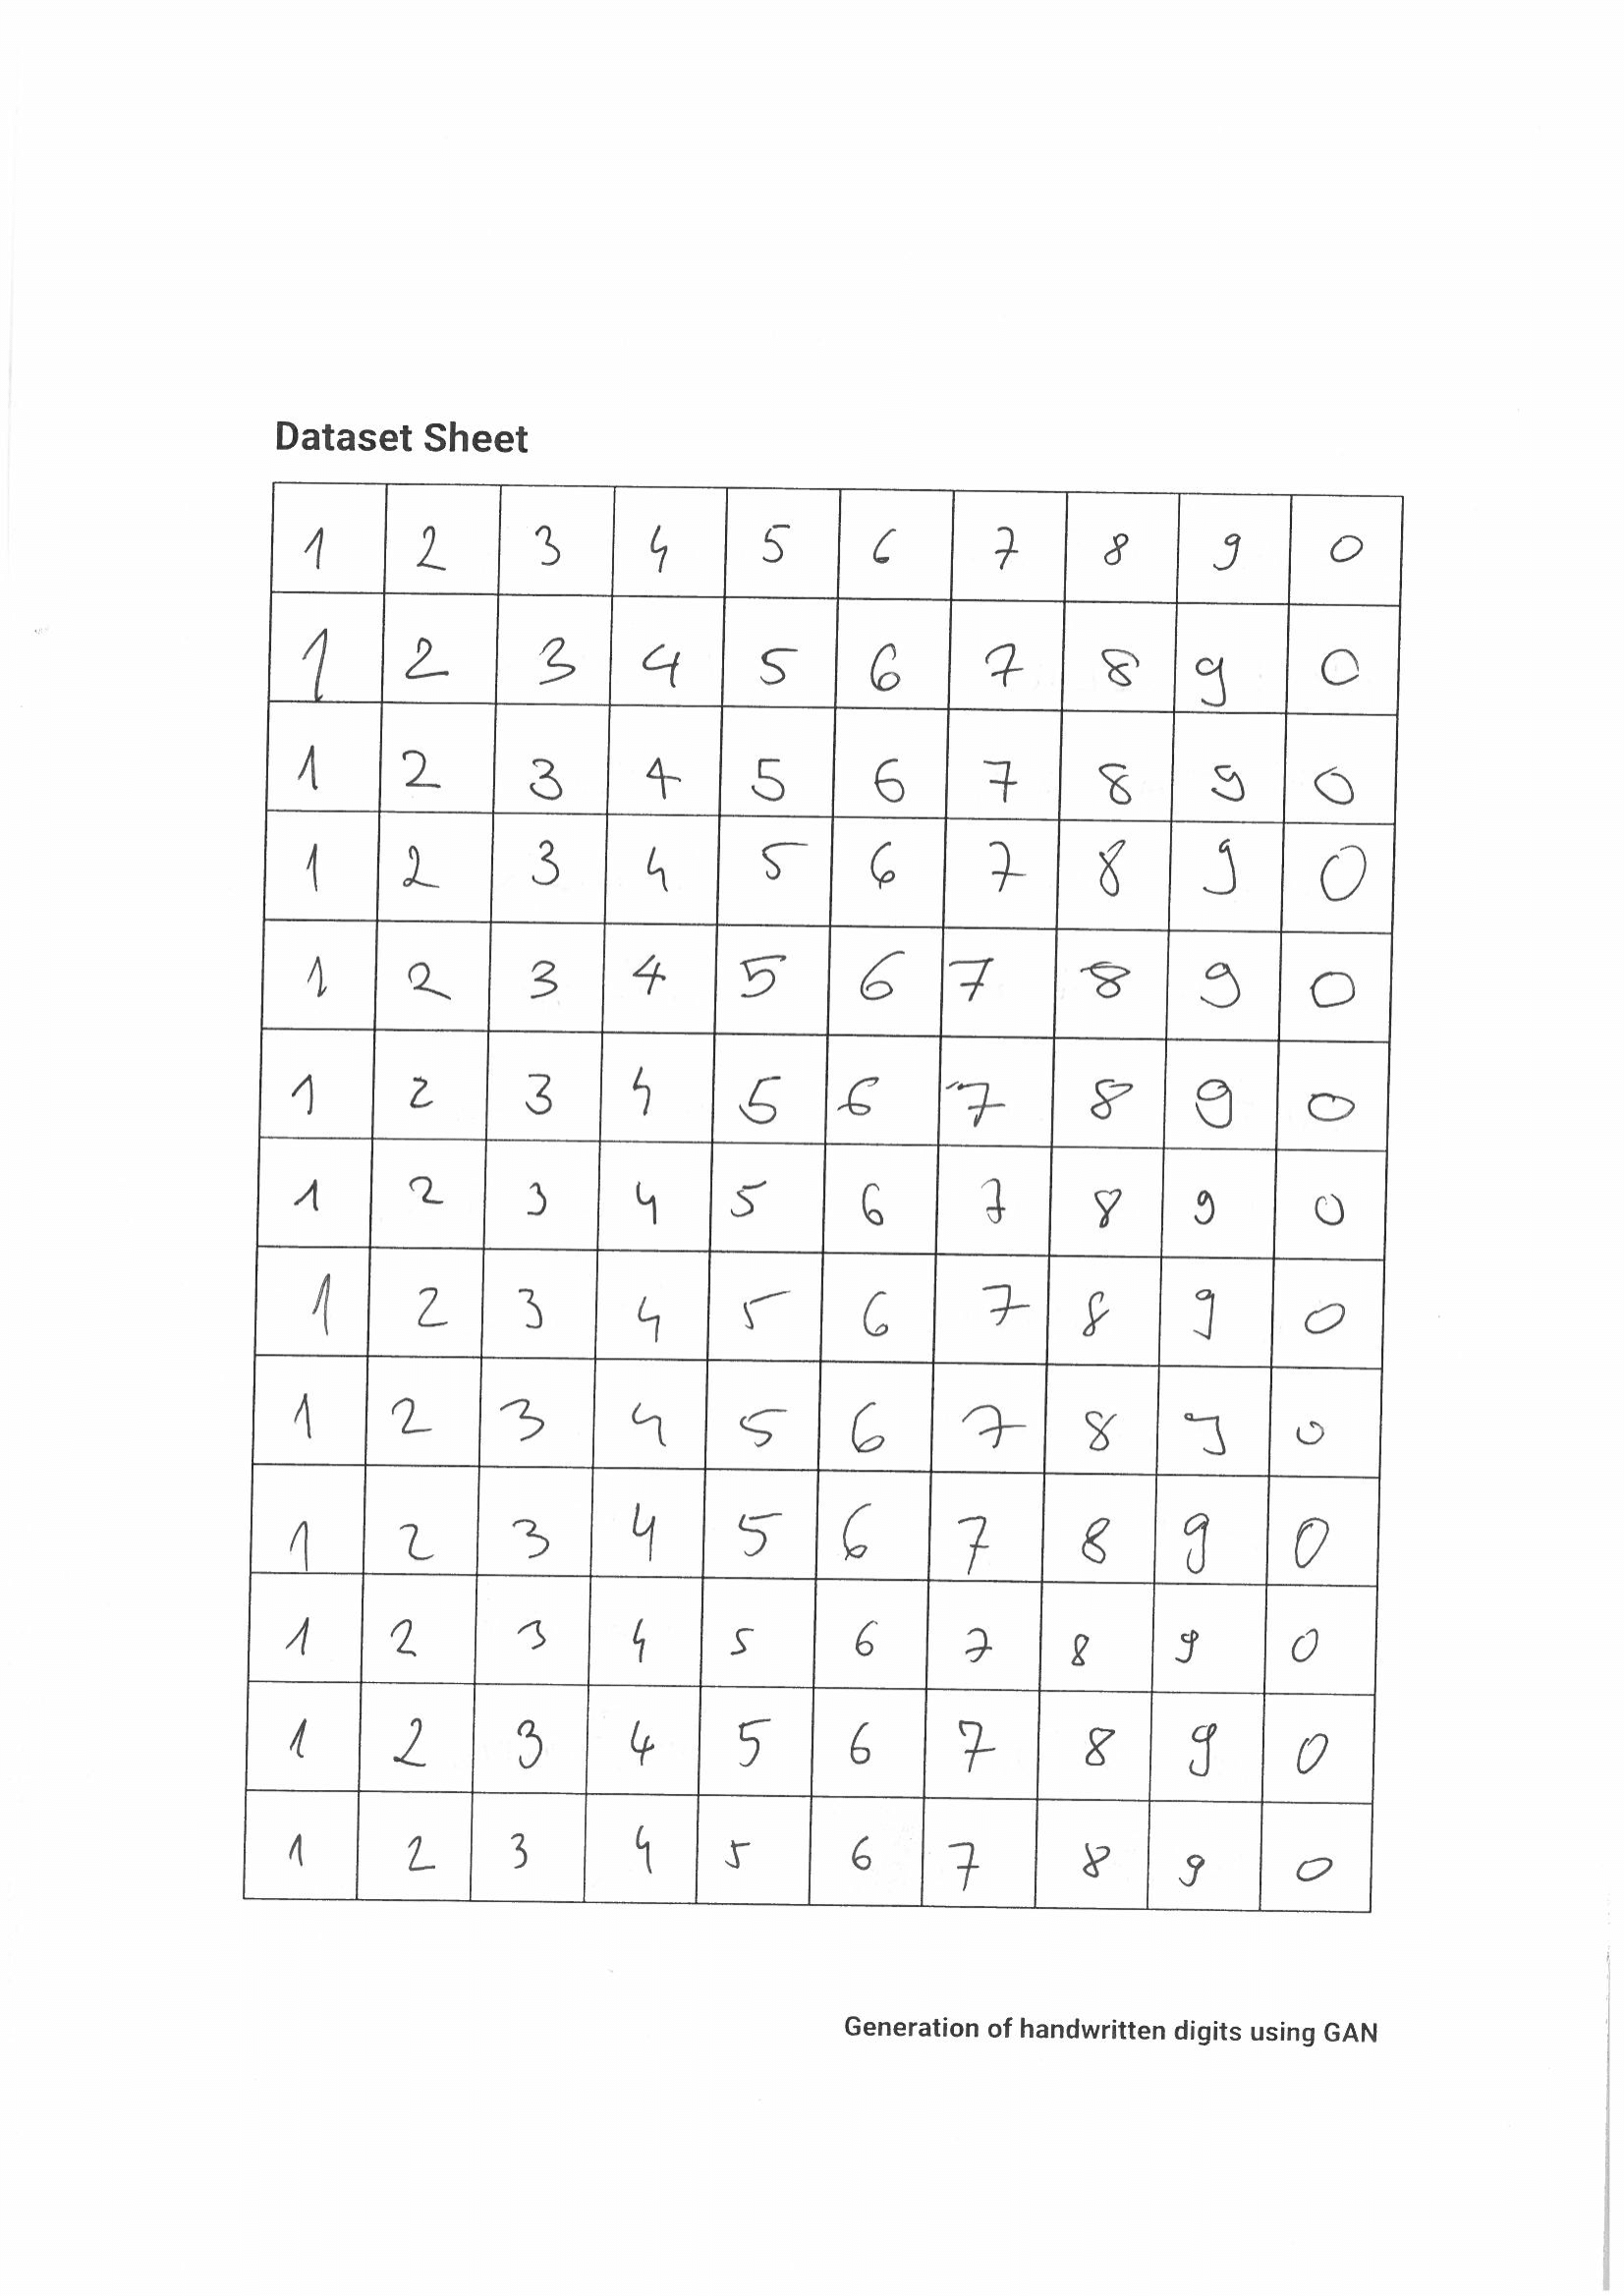 Dataset Sheet
1 2 3 4 5 6 7 8 9 0
1 2 3 4 5 6 7 8 9 0
1 2 3 4 5 6 7 8 9 0
1 2 3 4 5 6 7 8 9 0
1 2 3 4 5 6 7 8 9 0
1 2 3 4 5 6 7 8 9 0
1 2 3 4 5 6 7 8 9 0
1 2 3 4 5 6 7 8 9 0
1 2 3 4 5 6 7 8 9 0
1 2 3 4 5 6 7 8 9 0
1 2 3 4 5 6 7 8 9 0
1 2 3 4 5 6 7 8 9 0
1 2 3 4 5 6 7 8 9 0
Generation of handwritten digits using GAN